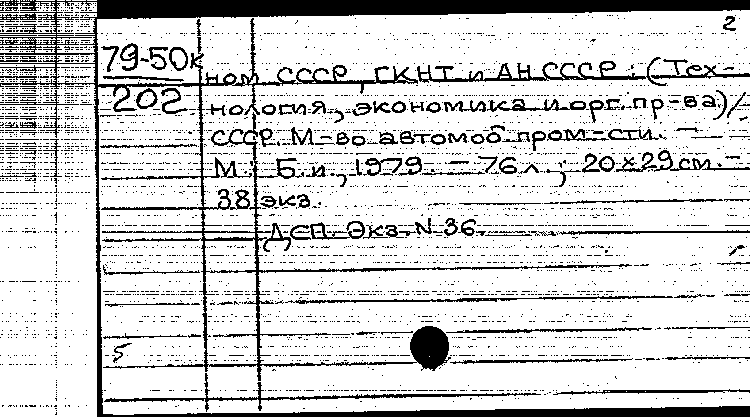 2
79-50к
202
ном СССР, ГКНТ и АН СССР : (Тех-
нология, экономика и орг. пр-ва) /
СССР. М-во автомоб. пром-сти. —
М. : Б. и., 1979. — 76 л. ; 20х29 см. —
38 экз.
ДСП. Экз. N 36.
5